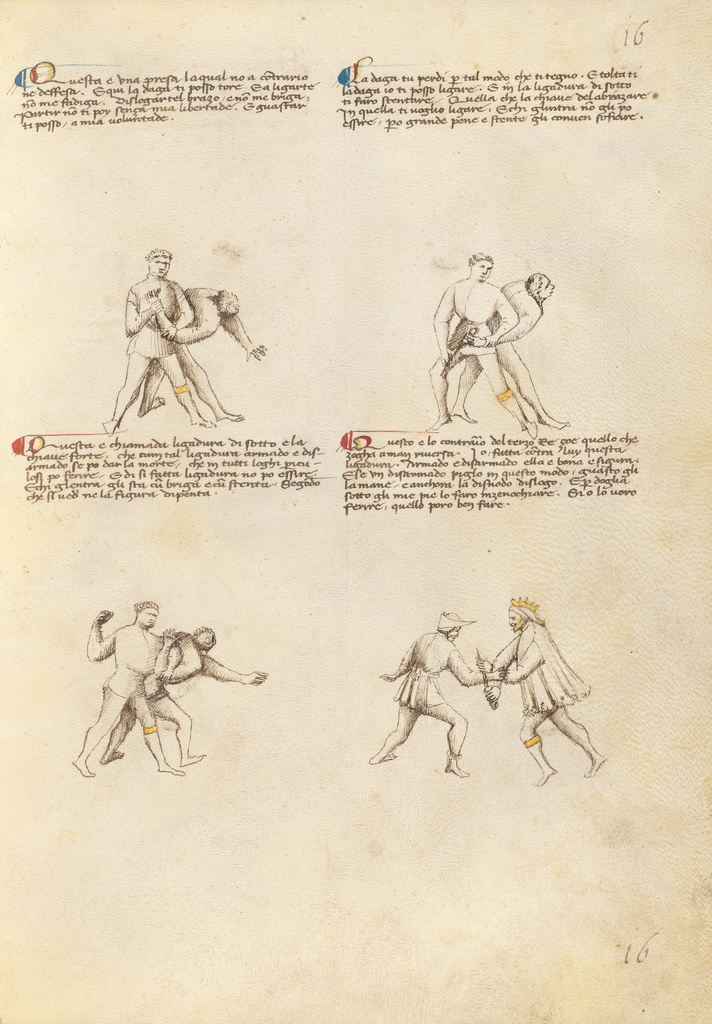 16
Questa e una presa laqual no a cōtrario
ne deffesa. E qui la daga ti posso tore. E a ligarte
nō me fadiga. Dislogartel brazo, e nō me briga,
Partir nō ti poy senza mia libertade. E guastar
ti posso, a mia voluntade.
La daga tu perdi p tal modo che ti tegno. E tolta ti
la daga io ti posso ligare. E in la ligadura di sotto
ti faro stentare. Quella che la chiave del abrazare
In quella ti voglio ligare. E chi glintra nō gli po
essire, p̱o grande pene e stente gli conven sofrire.
Questa e chiamada ligadura di sotto e la
chiave forte, che cum tal ligadura armado e dis-
armado se po dar la morte, che in tutti loghi piculo-
losi po ferire. E di si fatta ligadura no po essire.
E chi glentra gli sta cū briga e cū stenta, Segōdo
che si ved ne la figura dipenta.
Questo e lo contrario del terzo Re çoe quello che
zogha a man riversa. Io fatta cōtra luy questa
ligadura. Armado e disarmado ella e bona e sigura.
E se un disarmado piglo in questo modo, guasto gli
la mane e anchora la disnodo dislogo. E p doglia
sotto gli mie pie lo faro inzenochiare. E si o lo voro
ferire, quello poro ben fare.
16